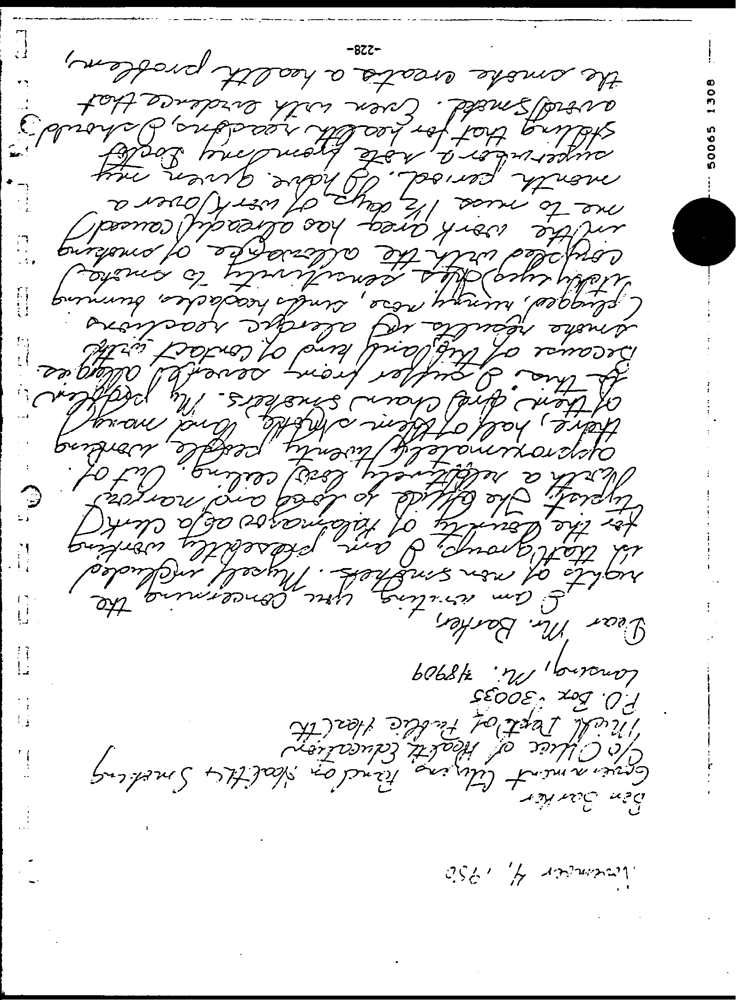 November 4, 1980
Ben Barker
Government Citizins Panel on Health & Smoking
c/o Office of Health Education
Mich Dept of Public Health
P.O. Box 30035
Lansing, Mi. 48909
Dear Mr. Barker,
I am writing you concerning the
rights of non smokers. Myself included
in that group. I am presently working
for the County of Kalamazoo as a Clerk
Typist. The office is long and narrow
with a relatively low ceiling. Out of
approximately twenty people working
there, half of them smoke, and many
of them are chain smokers. My problem
is this: I suffer from several allergies.
Because of this, any kind of contact with
smoke results in allergic reactions
(plugged, runny nose, sinus headaches, burning
itchy eyes) This sensitivity to smoke,
coupled with the allowance of smoking
in the work area has already caused
me to miss 1½ days of work over a
month period. I have given my
supervisor a note from my Doctor
stating that for health reasons, I should
avoid smoke. Even with evidence that
the smoke creates a health problem,
-228-
50065 1308